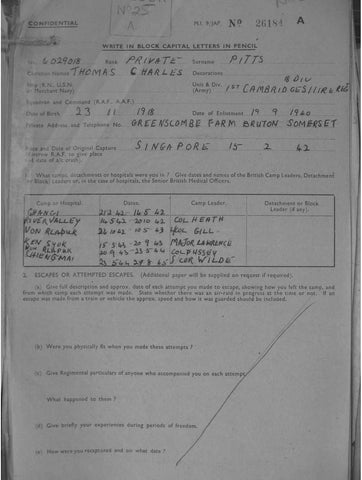 CONFIDENTIAL M.I. 9/JAP. No 26184 A
No 25
A.
WRITE IN BLOCK CAPITAL LETTERS IN PENCIL
No. 6029018 Rank PRIVATE Surname PITTS
Christian Names THOMAS CHARLES Decorations
Ship (R.N., U.S.N. or Merchant Navy) Unit & Div. (Army) 18 DIV 1ST CAMBRIDGESHIRE REG
Squadron and Command (R.A.F., A.A.F.)
Date of Birth 23 11 1918 Date of Enlistment 19 9 1940
Private Address and Telephone No. GREENSCOMBE FARM BRUTON SOMERSET
Place and Date of Original Capture SINGAPORE 15 2 42
(Aircrew R.A.F. to give place and date of a/c crash).
1. What camps, detachments or hospitals were you in? Give dates and names of the British Camp Leaders, Detachment or Block Leaders or, in the case of hospitals, the Senior British Medical Officers.
Camp or Hospital. Dates. Camp Leader. Detachment or Block Leader (if any).
CHANGI 21 2 42 - 14 5 42
RIVER VALLEY 14 5 42 - 20 10 42 COL HEATH
NON PLADUK 10 5 43 COL GILL
KEN SYOK 15 5 43 - 20 9 43 MAJOR LAWRENCE
NON PLADUK 20 9 43 - 23 5 44
CHIENGMAI 23 5 44 27 8 45 WILDE
2. ESCAPES OR ATTEMPTED ESCAPES. (Additional paper will be supplied on request if required).
(a) Give full description and approx. date of each attempt you made to escape, showing how you left the camp, and from which camp each attempt was made. State whether there was an air-raid in progress at the time or not. If an escape was made from a train or vehicle the approx. speed and how it was guarded should be included.
(b) Were you physically fit when you made these attempts?
(c) Give Regimental particulars of anyone who accompanied you on each attempt.
What happened to them?
(d) Give briefly your experiences during periods of freedom.
(e) How were you recaptured and on what date?